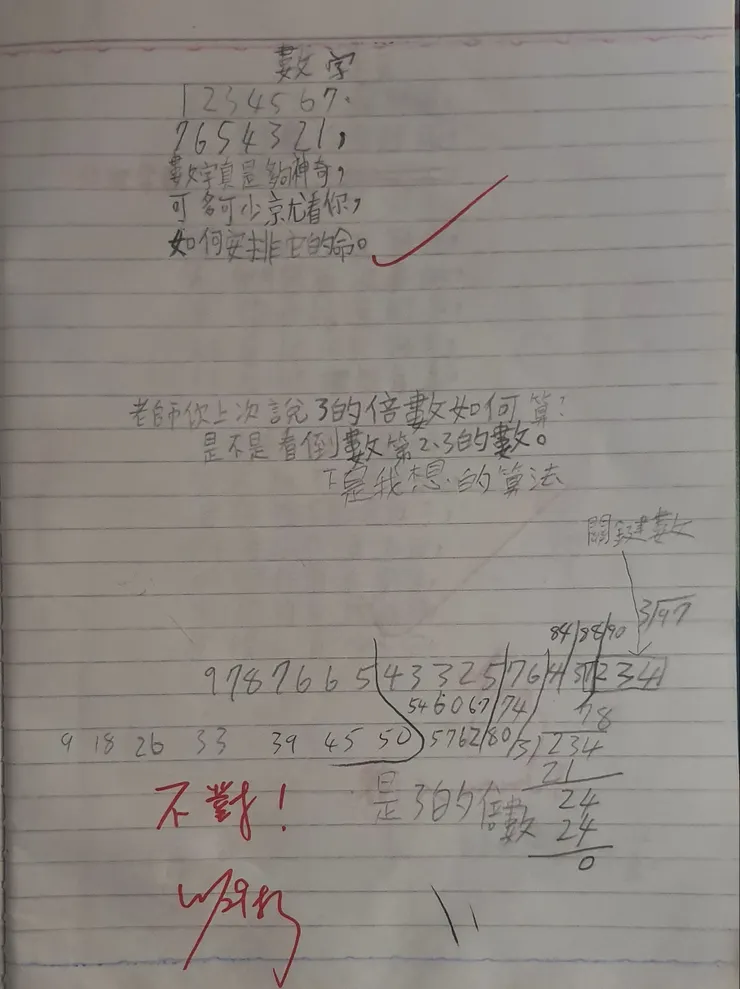 數字
1234567.
7654321,
數字真是夠神奇,
可多可少京尤看你,
如何安排它的命。
老師你上次說3的倍數如何算?
是不是看倒數第2、3的數。
下是我想的算法
關鍵數
3/97
84/88/90
9787665 43325 76 4 37 234
54 60 67 74 78
9 18 26 33 39 45 50 57 62 80 3/234
21
不對! 是3的倍數 24
24
0